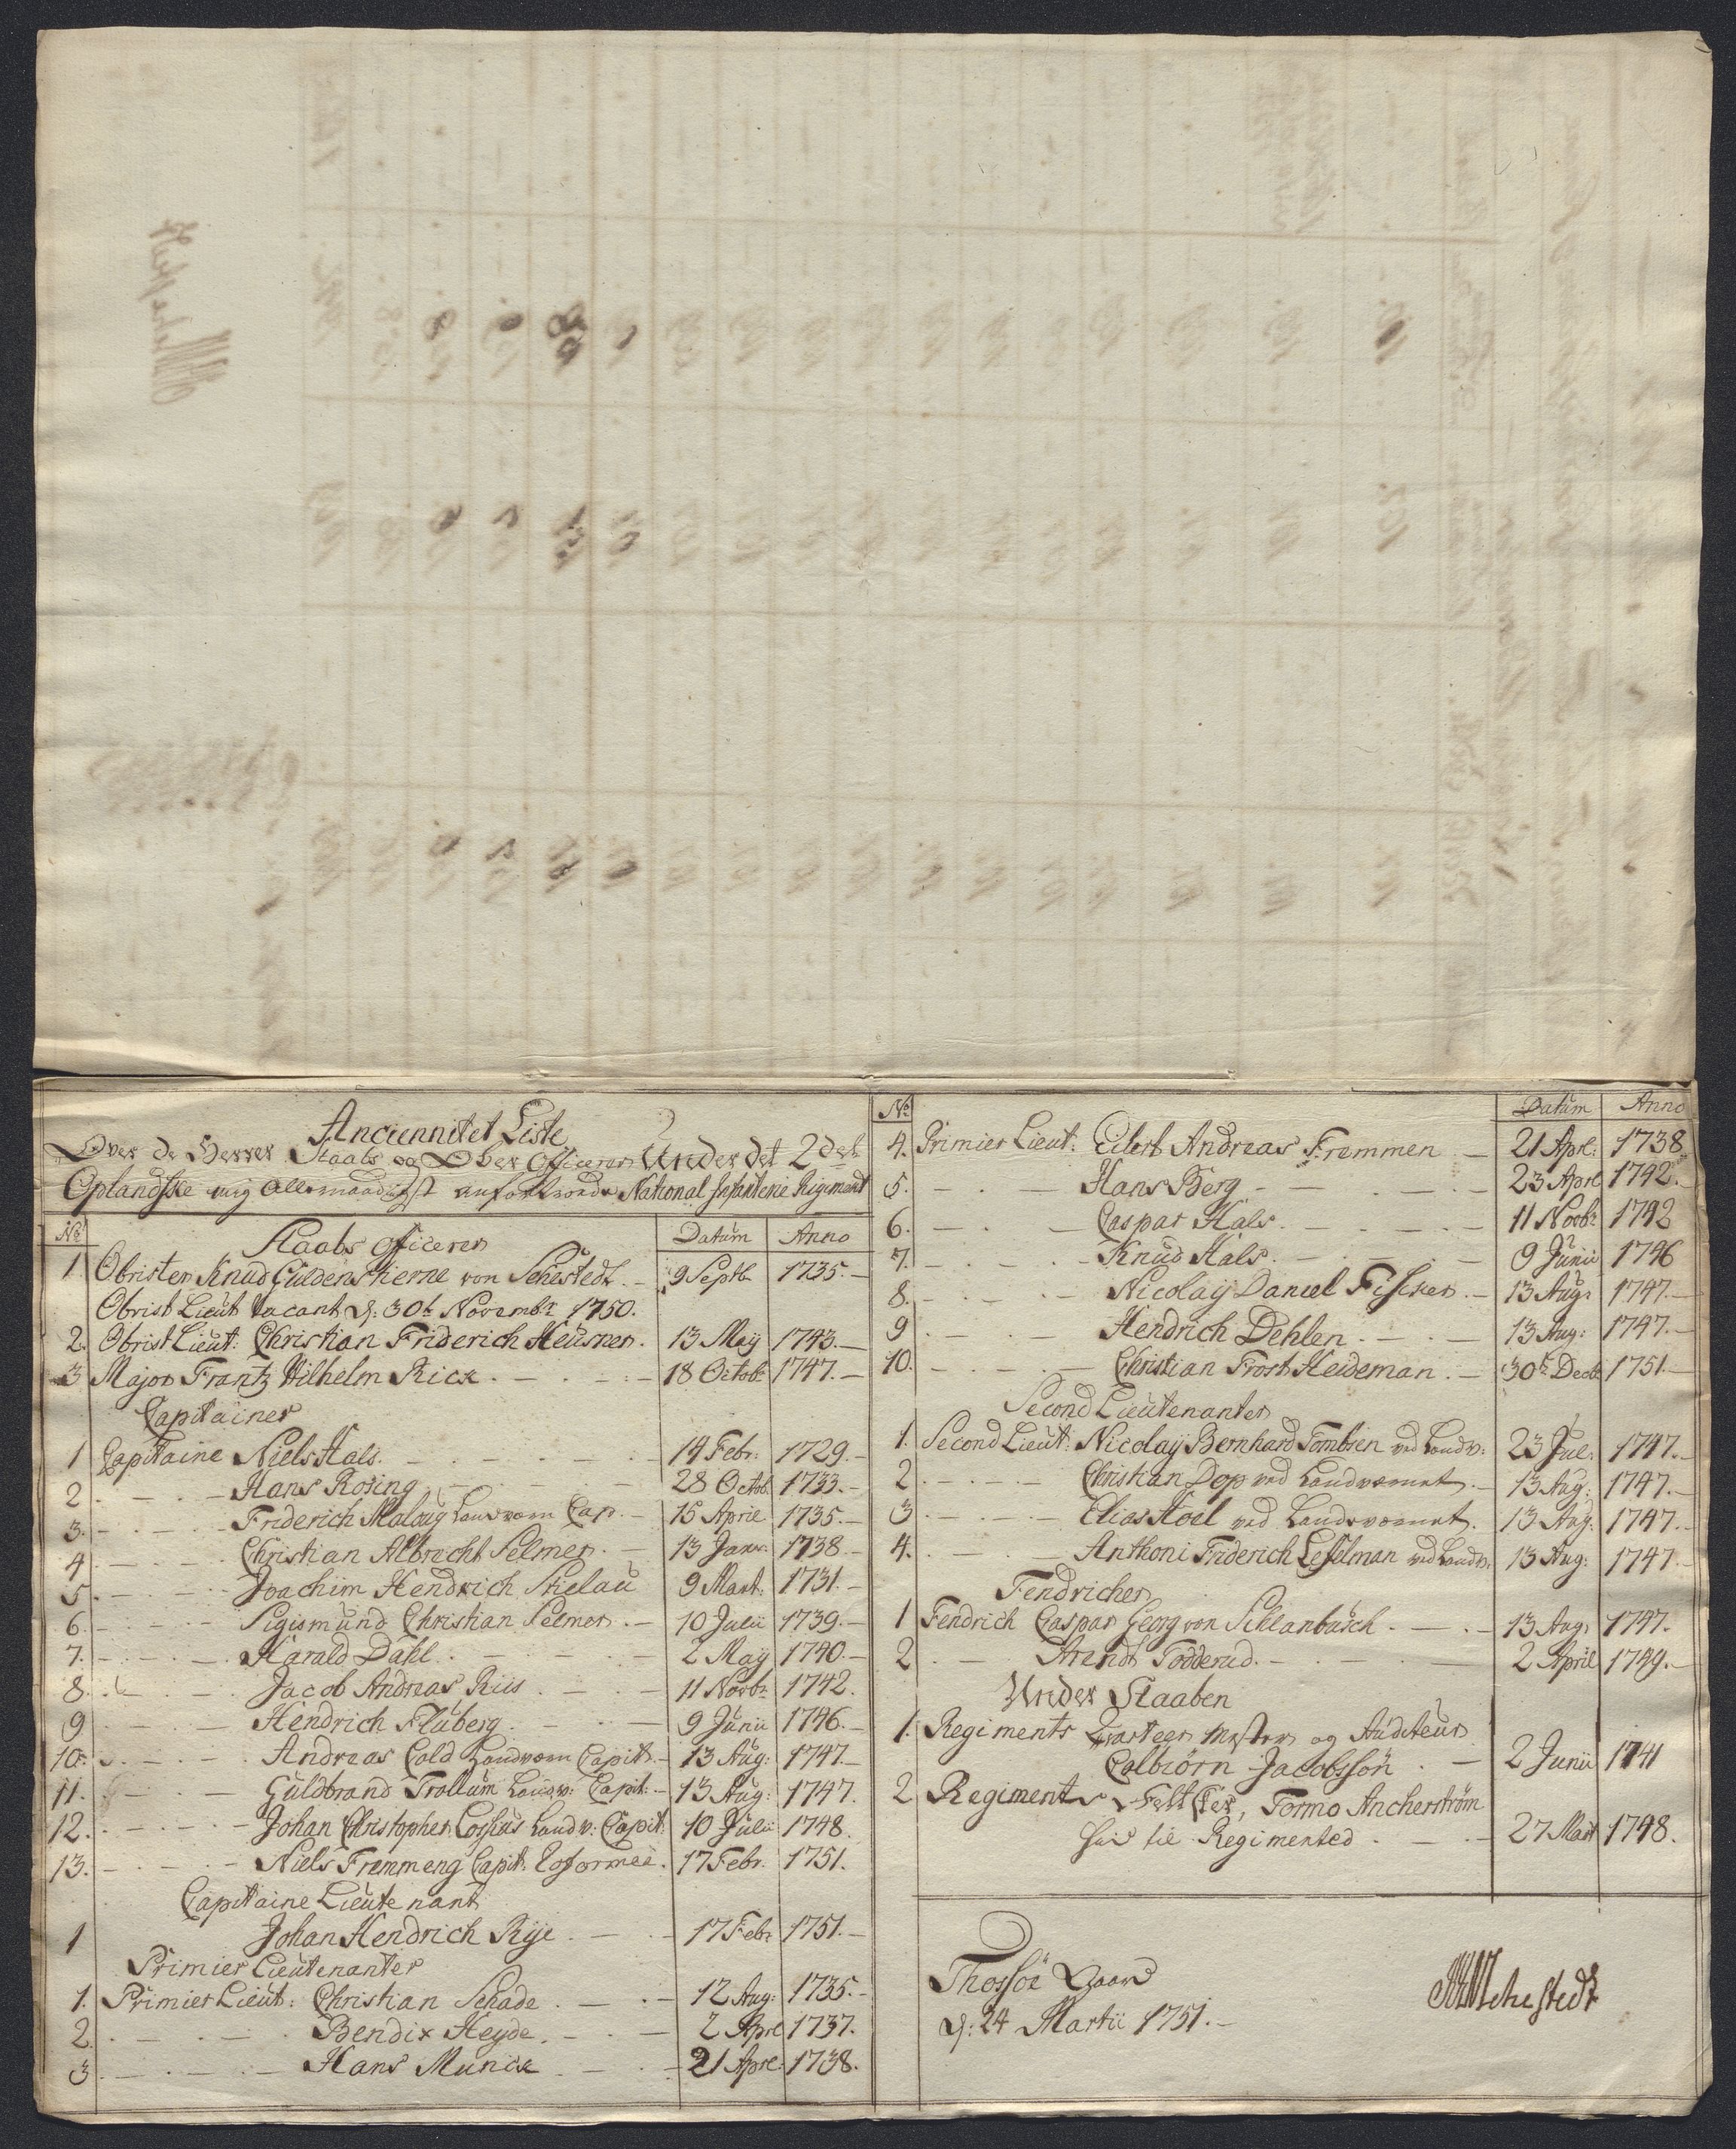 Anciennitet Liste
Over de Herrer Staabs og Ober Officerer Under det 2det
Oplandske mig Allernaadigst anfortroede National Infanterie Regiment
No Staabs Officerer Datum Anno
1 Obrister Knud Gÿldenstierne von Sehestedt. — 9 Septbr 1735. —
Obrist Lieut vacant d: 30te Novembr 1750.
2. Obrist Lieut: Christian Friderich Heusner. 13 Maÿ 1743. —
3 Major Frantz Wilhelm Rick. — 18 Octobr 1747. —
Capitainer
1 Capitaine Niels Hals. — 14 Febr: 1729. —
2 — Hans Rosing — 28 Octob. 1733. —
3. — Friderich Malaug Landværn Cap. — 15 Aprie 1735. —
4 — Christian Albrecht Selmer. — 13 Janv: 1738 —
5 — Joachim Hendrich Stielau 9 Mart: 1731. —
6. — Sigismund Christian Selmer. — 10 Julii 1739. —
7. — Harald Dahl. — 2 Maÿ 1740. —
8. — Jacob Andreas Riis — 11 Novbr 1742.
9 — Hendrich Fluberg. — 9 Junii 1746. —
10. — Andreas Cold Landværn Capit. — 13 Aug: 1747. —
11. — Guldbrand Trollum Landv: Capit: — 13 Aug: 1747.
12. — Johan Christopher Cossius Landv: Capit: 10 Julii 1748.
13. — Niels Fremmeng Capit: Reformeé. 17 Febr. 1751.
Capitaine Lieutenant
1 Johan Hendrich Rÿe. — 17 Febr 1751. —
Primier Lieutenanter
1. Primier Lieut: Christian Schade. — 12 Aug: 1735. —
2. — Bendix Heyde. — 2 Aprl 1737.
3 — Hans Munck — 21 Aprl: 1738.
No Datum Anno
4. Primier Lieut: Eilert Andreas Fremmen — 21 Aprl: 1738
5. — Hans Berg — 23 Aprl 1742. —
6. — Caspar Hals. — 11 Novbr 1742
7. — Knud Hals. — 9 Junii 1746
8. — Nicolaÿ Daniel Fischer. — 13 Aug: 1747. —
9 — Hendrich Dehlen. — 13 Aug: 1747. —
10. — Christian Frost Heideman. — 30te Decbr 1751. —
Second Lieutenanter
1. Second Lieut: Nicolaÿ Bernhard Tombsen ved Landv: 23 Jul: 1747. —
2 — Christian Dop ved Landværnet. — 13 Aug: 1747. —
3 — Elias Hoel ved Landværnet. 13 Aug: 1747. —
4. — Anthoni Friderich Lesselman ved Landv: 13 Aug: 1747. —
Fendricher
1 Fendrich Caspar Georg von Schlanbusch. — 13 Aug: 1747.
2 — Arendt Todderud. — 2 April 1749. —
Under Staaben
1. Regiments Qvarteer Mester og Auditeur
Colbiörn Jacobssön. — 2 Junii 1741
2 Regiments Felt Skier, Tormo Ancherström
her til Regimentet — 27 Mart 1748.
Thossöe Gaard
d: 24 Martii 1751. —
Sehestedt